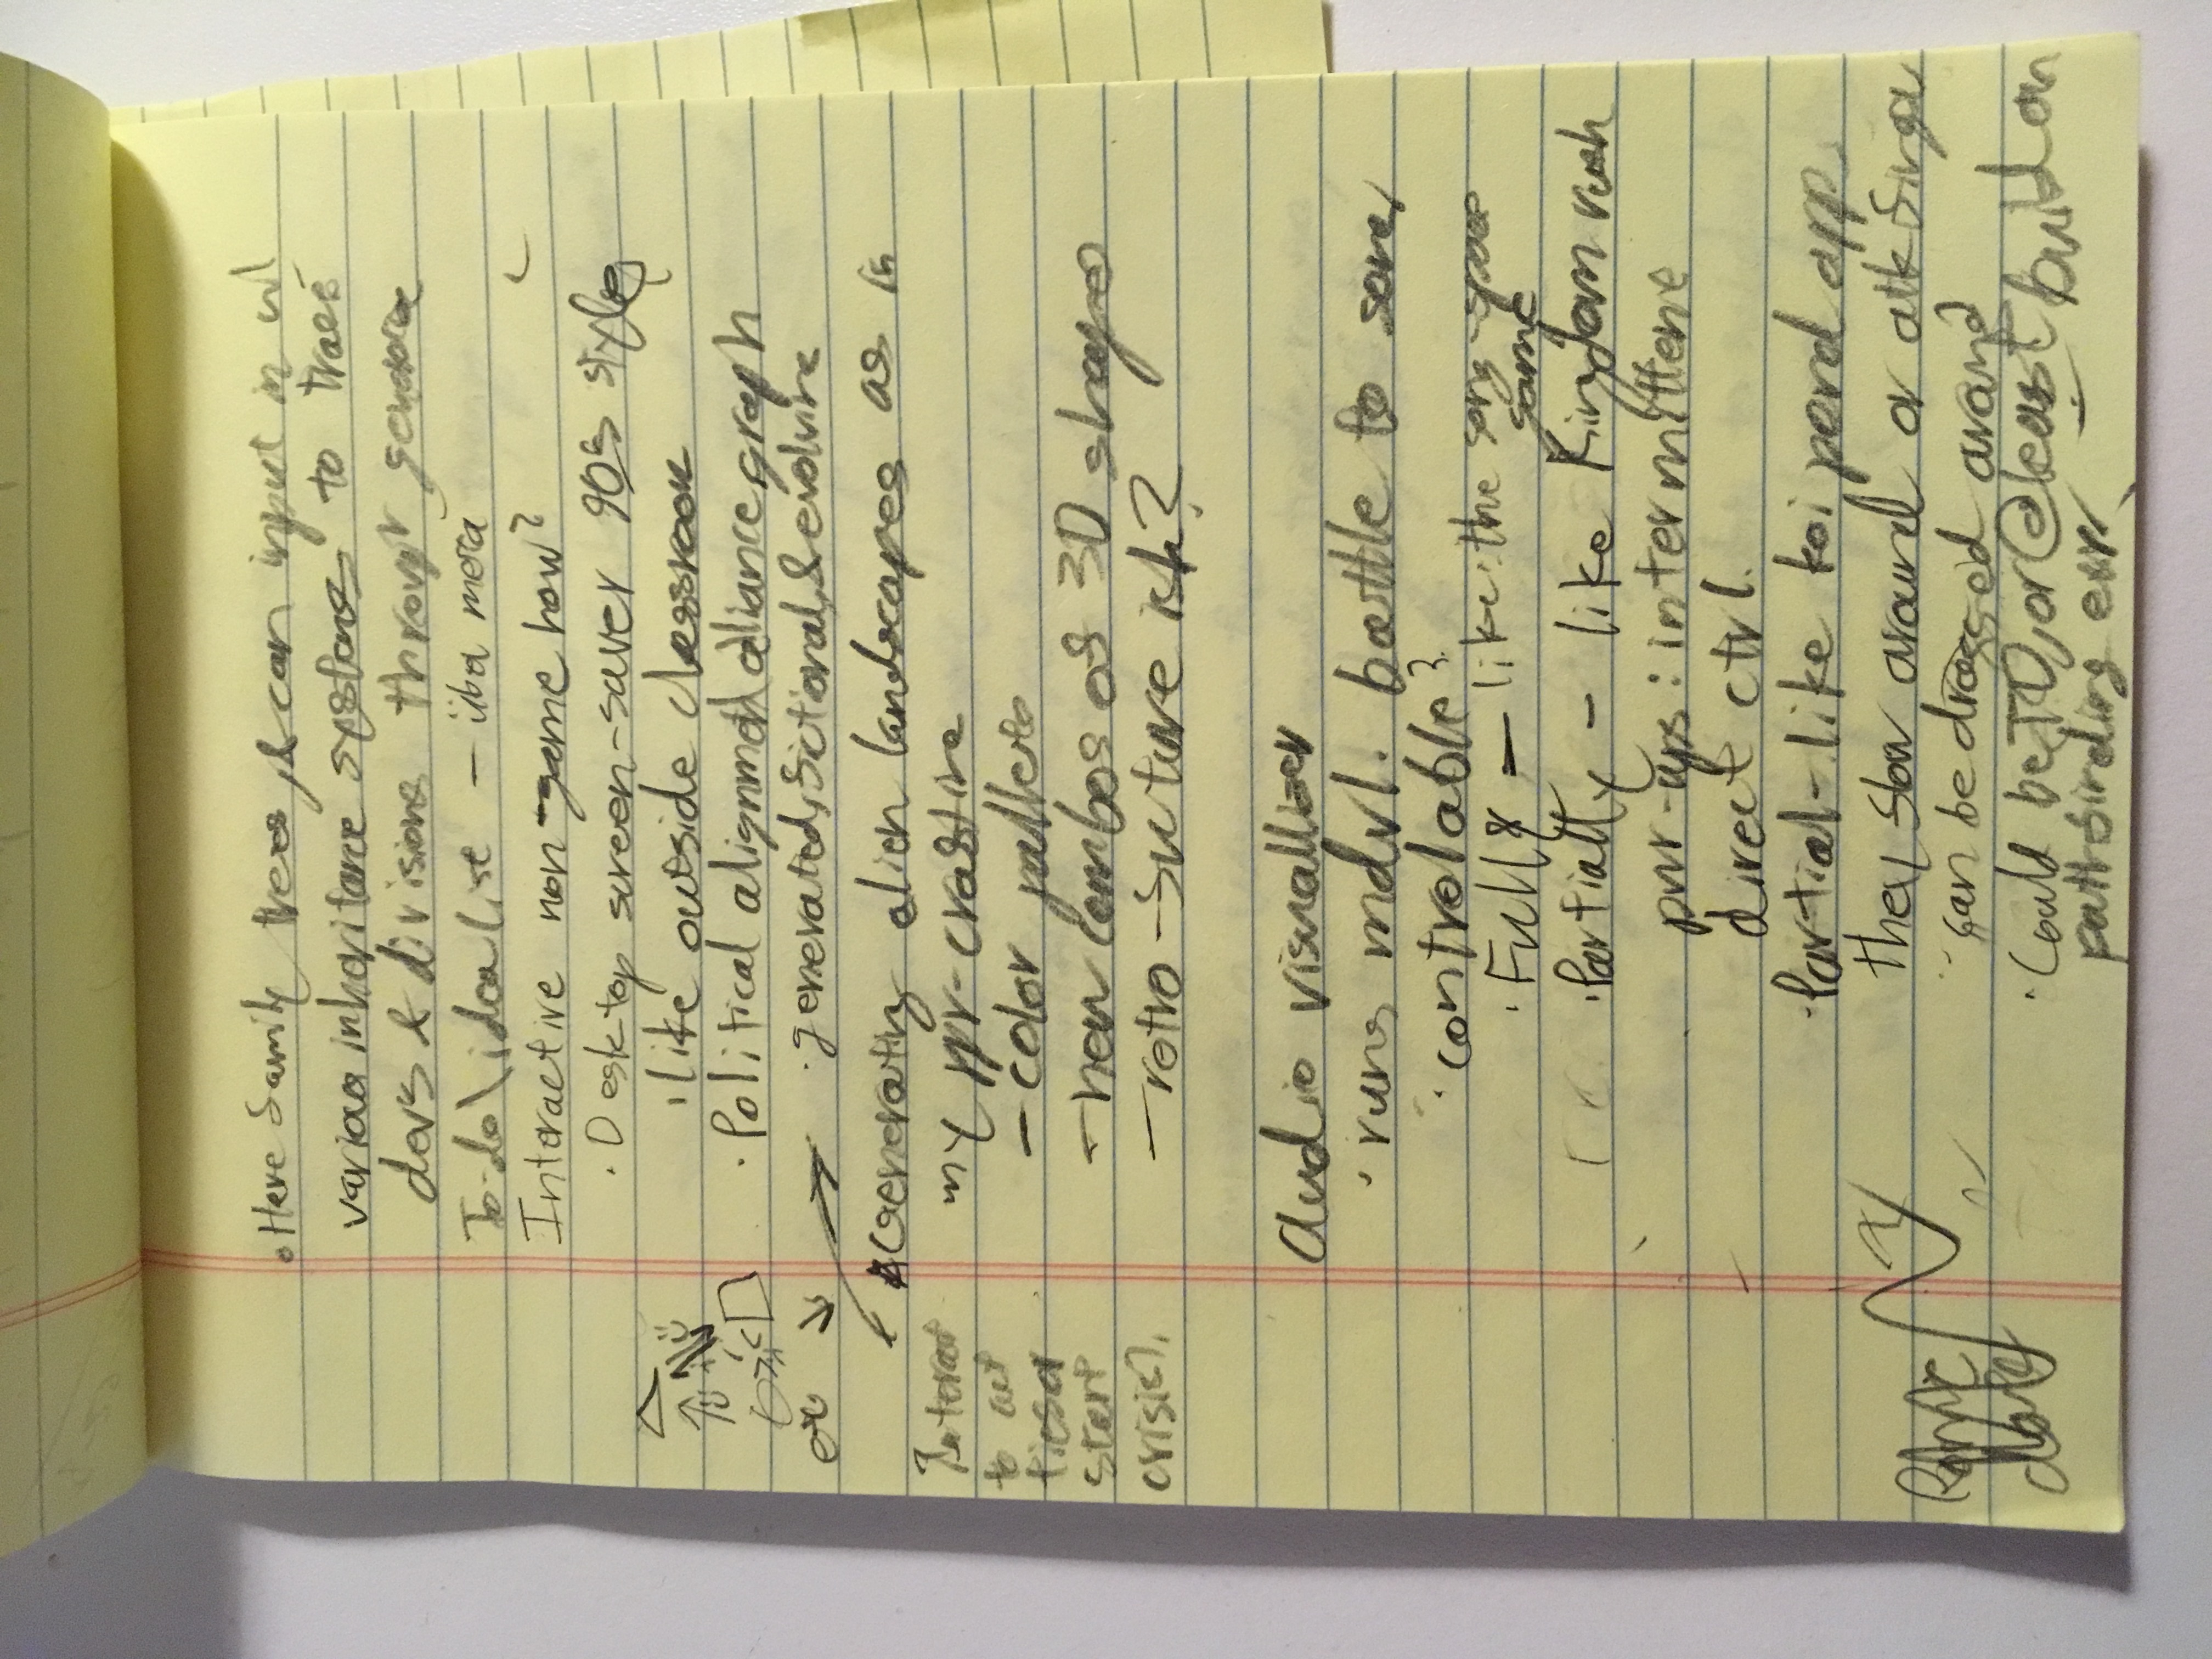 · Have family trees, & can input in w/
various inheritance systems to trace
devs & divisions through
To-do\idea list — über meta
Interactive non-game how?
· Desktop screen-saver 90s style
· like outside classroom
· Political alignment\alliance graph
· generated, fictional, & evolving
Generating alien landscapes as in
my ppr-crafting
- color pallets
- new combos of 3D shapes
- retro-future ish?
Interact
to cut
ties or
start
crisis?
Audio visuallizer
· runs mdvl. battle to song
· controlable?
· Fully — like the song-space
game
· Partially - like Kingdom rush
pwr-ups: intermittent
direct ctrl.
· Partial - like koi pond app
they flow around or atk finger
· can be dragged around
· Could be TD, or @ least build on
pathfinding exp.